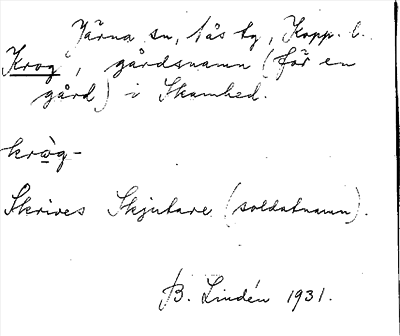 Järna sn, Nås tg, Kopp. l.
Krog, gårdsnamn (för en
gård) i Skamhed.
kròg-
Skrives Skjutare (soldatnamn).
B. Lindén 1931.